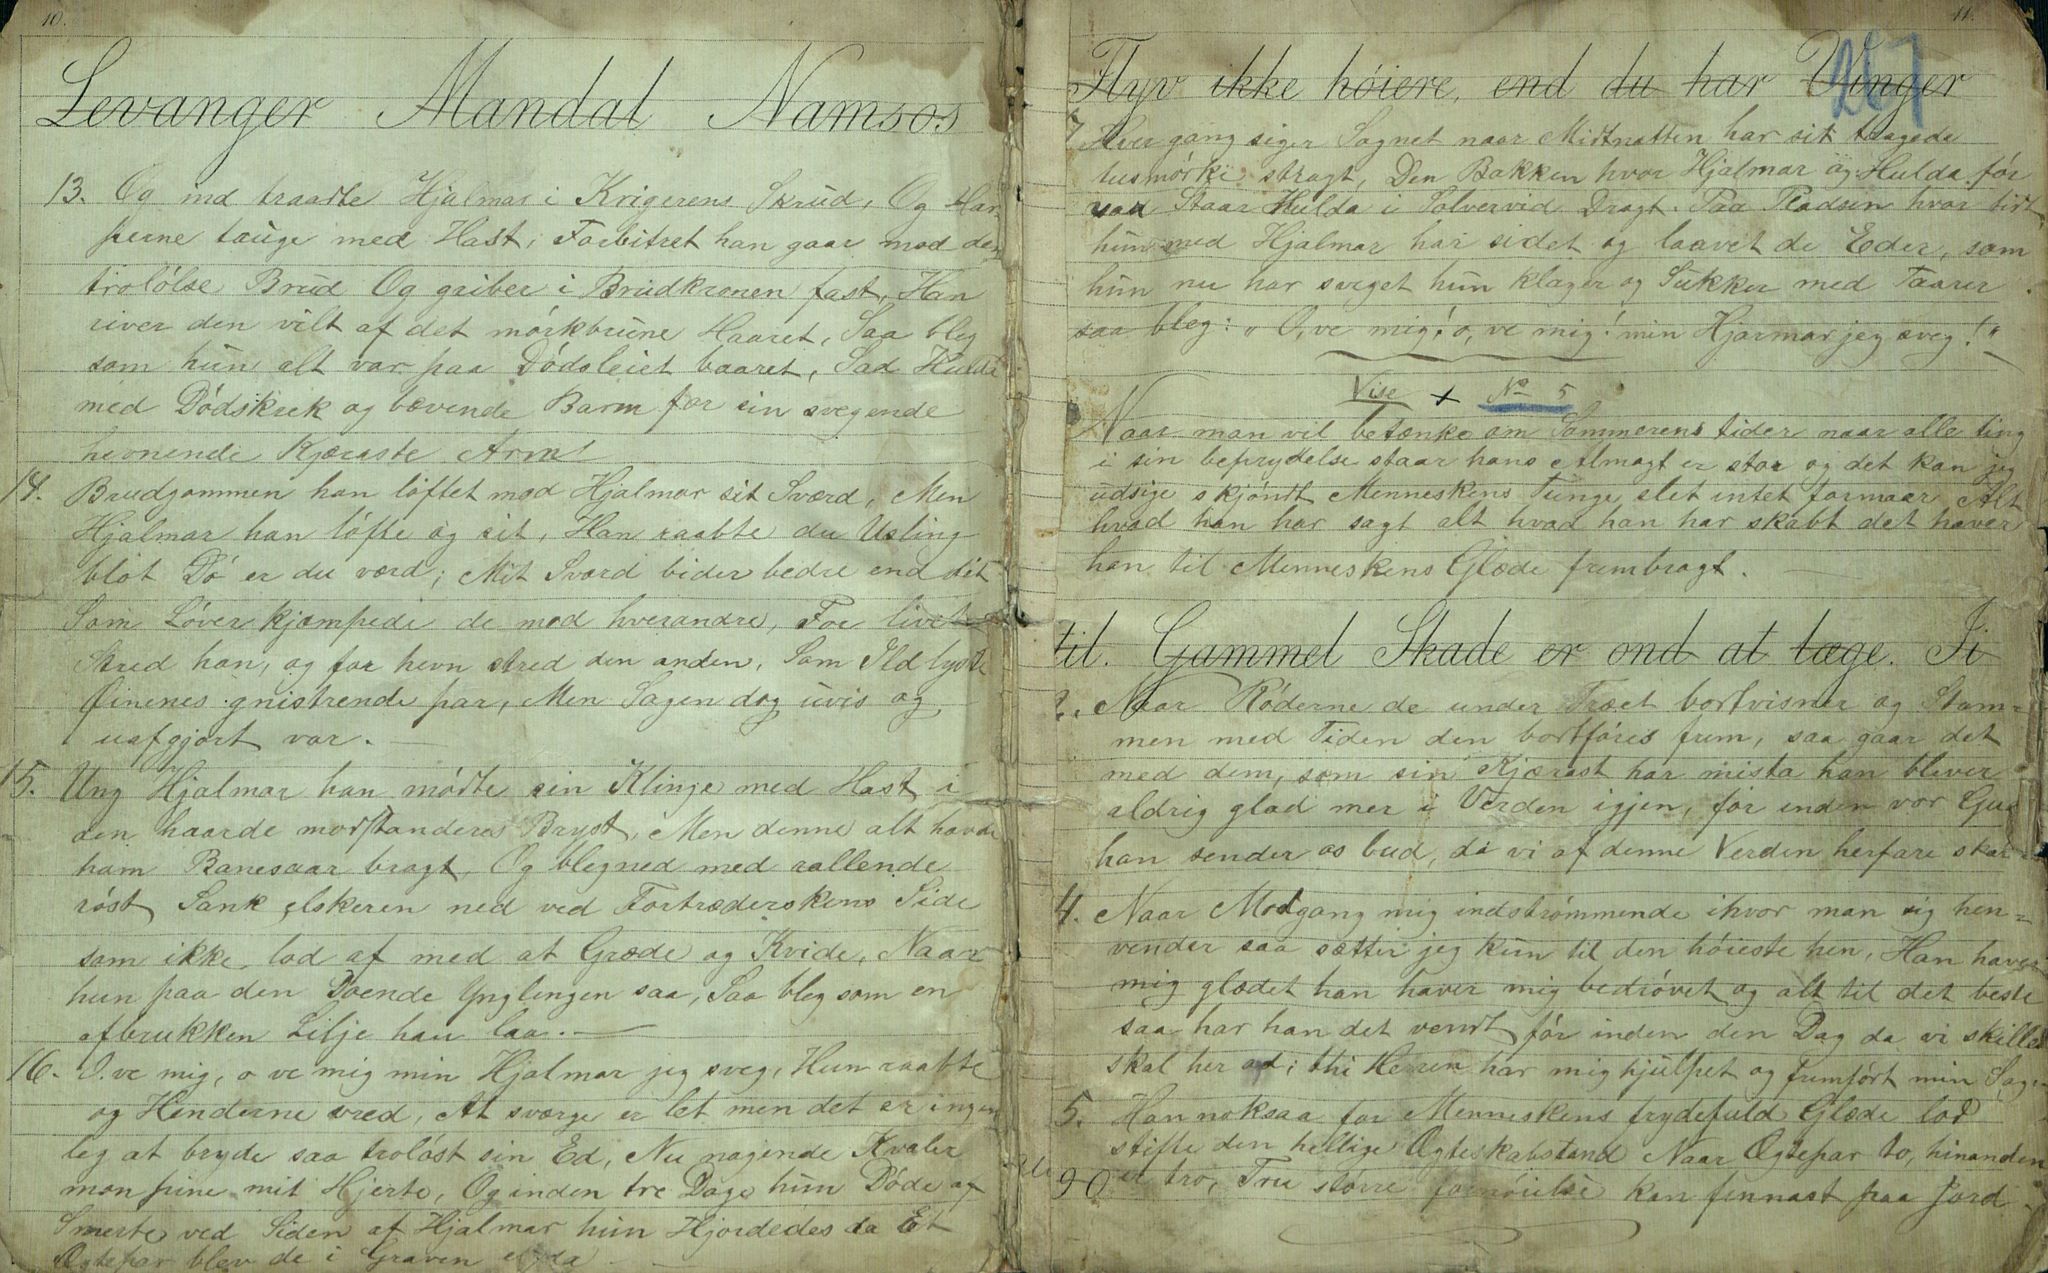 10.
Levanger Mandal Namsos
13. Og ind traadte Hjalmar i Krigerens Skrud, Og Har
perne tauge med Hast, Forbitret han gaar mod den
trolólse Brud Og griber i Brudkronen fast, Han
river den vilt af det mórkbrune Haaret, Saa bleg
som hun alt var paa Dódsleiet baaret, Sad Hulda
med Dódskrek og bævende Barm for sin svegende
hevnende Kjæraste Arm!
14. Brudgommen han lóftet mod Hjalmar sit Sværd, Men
Hjalmar han lófte og sit, Han raabte du Usling
blot Dó er du værd; Mit Sværd bider bedre end dit
Som Lóver kjæmpede de mod hverandre, For livet
Stred han, og for hevn stred den anden, Som Ild lyste
Óinenes gnistrende par, Men Sagen dog uvis og
uafgjort var. —
15. Ung Hjalmar han módte sin Klinge med Hast i
den haarde modstanderes Bryst, Men denne alt havde
ham Banesaar bragt, Og blegned med rallende
róst Sank elskeren ned ved Fortræderskens Side
som ikke lod af med at Græde og Kvide, Naar
hun paa den Doende Ynglingen saa, Saa bleg som en
afbrukken Lilje han laa. —
16. O. ve mig, o ve mig min Hjalmar jeg sveg, Hun raabte
og Henderne vred, At sværge er let men det er ingen
leg at bryde saa trolóst sin Ed, Nu nagende Kvaler
mon pine mit Hjerte, Og inden tre Dage hun Dóde af
Smerte ved Siden af Hjalmar hun Hjordedes da Et
Ægtepar blev de i Graven endda
11.
267
Flyv ikke hóiere, end du har Vinger
7 Hver gang siger Sagnet naar Midtnatten har sit taagede
tusmórke stragt, Den Bakken hvor Hjalmar og Hulda fór
sad Staar Hulda i Sólvervid Dragt. Paa Pladsen hvor tidt
hun med Hjalmar har sidet og laavet de Eder, som
hun nu har sveget hun klager og Sukker med Taarer
saa bleg: "O, ve mig! o, ve mig! min Hjarmar jeg sveg!"
Vise + No 5
Naar man vil betænke om Sommerens tider naar alle ting
i sin beprydelse staar hans Almagt er stor og det kan jeg
udsige skjóndt Menneskens Tunge slet intet formaar Alt
hvad han har sagt alt hvad han har skabt det haver
han til Menneskens Glæde frembragt. —
til. Gammel Skade er ond at læge. Ti
2. Naar Róderne de under Træet bortvisner og Stam-
men med Tiden den bortfóres frem, saa gaar det
med dem, som sin Kjærast har mista han bliver
aldrig glad mer i Verden igjen, fór enden vor Gud
han sender os bud, da vi af denne Verden herfare skal
4. Naar Modgang mig indstrómmende ihvor man sig hen-
vender saa sætter jeg kun til den hóieste hen, Han haver
mig glædet han haver mig bedróvet og alt til det beste
saa har han det vendt fór inden den Dag da vi skilles
skal her ad; thi Herren har mig hjulpet og fremfórt min Sag.
5. Han noksaa for Menneskens frydefuld Glæde lod
stifte den hellige Ægteskabstand Naar Ægtepar to, hinanden
er tro, Tru stórre fornóielse kan finnast paa Jord
90